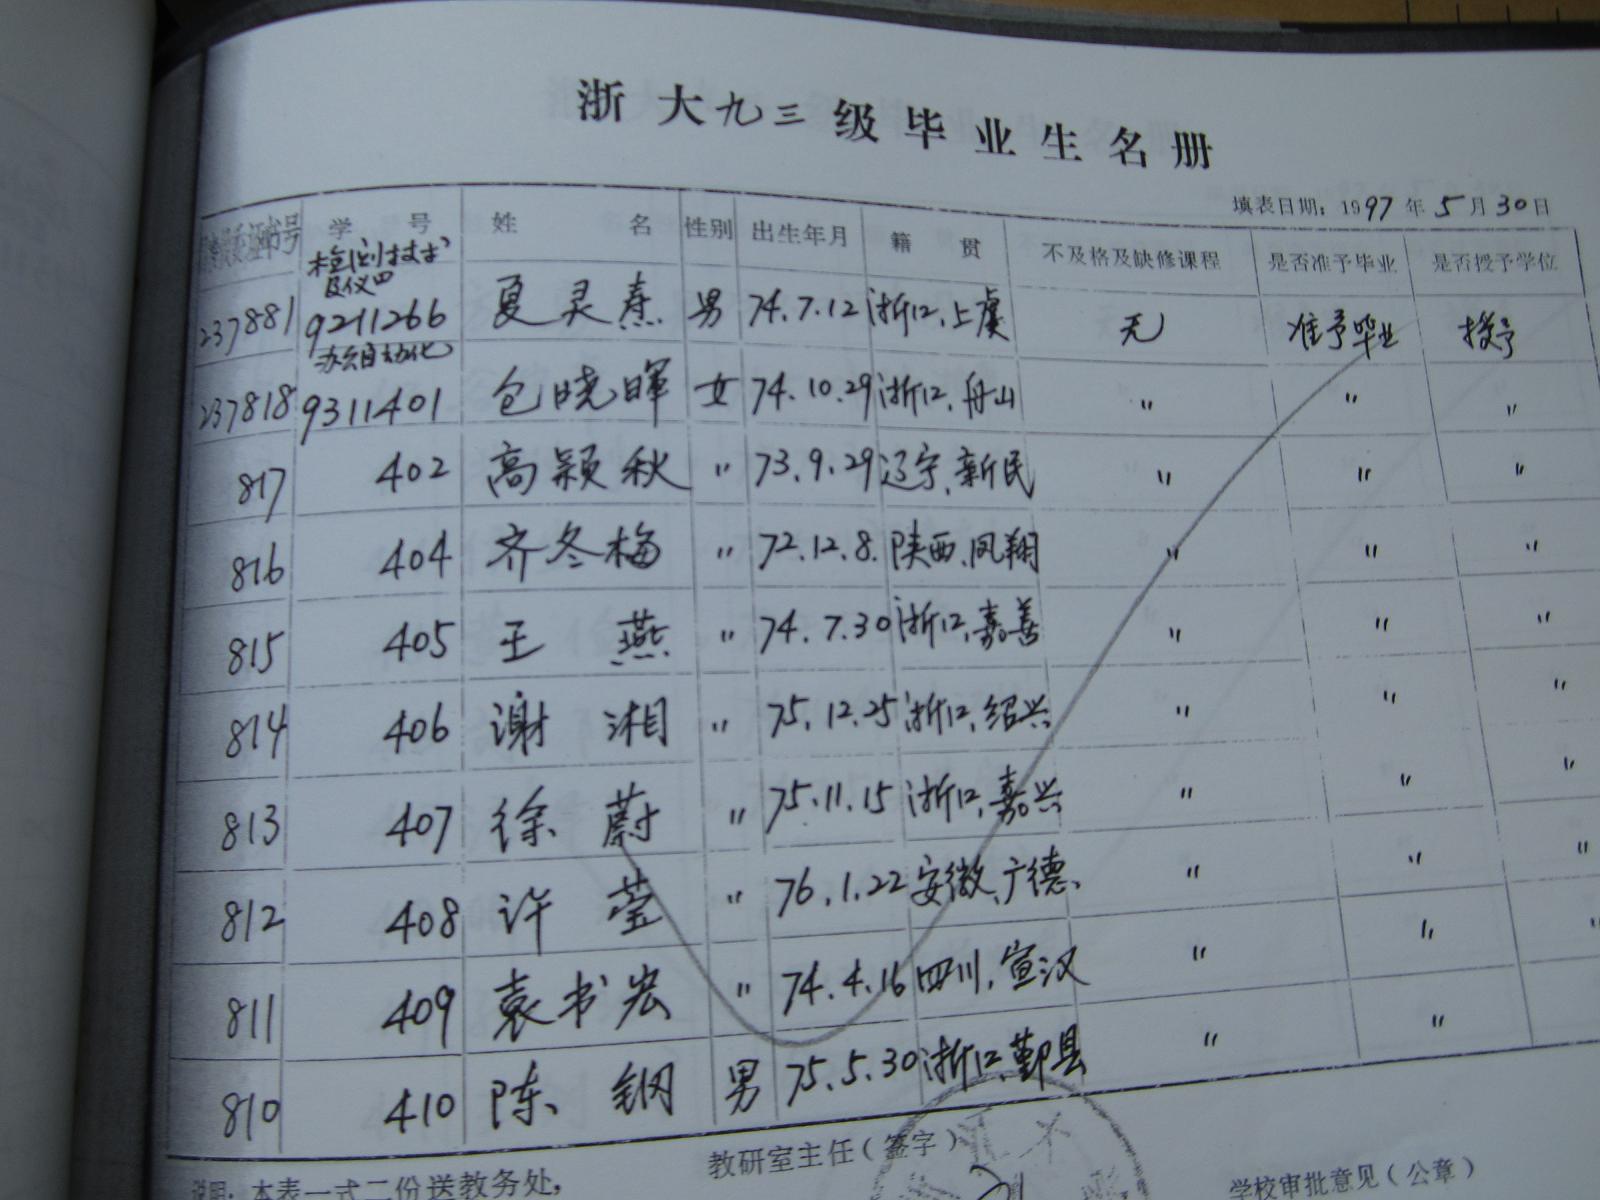 浙大九三级毕业生名册
填表日期：1997年5月30日
证书号 学号 姓名 性别 出生年月 籍贯 不及格及缺修课程 是否准予毕业 是否授予学位
检测技术
及仪四
237881 9211266 夏灵焘 男 74.7.12 浙江、上虞 无 准予毕业 授予
办公自动化
237818 9311401 包晓晖 女 74.10.29 浙江、舟山 〃 〃 〃
817 402 高颖秋 〃 73.9.29 辽宁、新民 〃 〃 〃
816 404 齐冬梅 〃 72.12.8. 陕西、凤翔 〃 〃 〃
815 405 王燕 〃 74.7.30 浙江、嘉善 〃 〃 〃
814 406 谢湘 〃 75.12.25 浙江、绍兴 〃 〃 〃
813 407 徐蔚 〃 75.11.15 浙江、嘉兴 〃 〃 〃
812 408 许莹 〃 76.1.22 安徽、广德、 〃 〃 〃
811 409 袁书宏 〃 74.4.16 四川、宣汉 〃 〃 〃
810 410 陈钢 男 75.5.30 浙江、鄞县 〃 〃
教研室主任（签字）
学校审批意见（公章）
说明：本表一式二份送教务处，